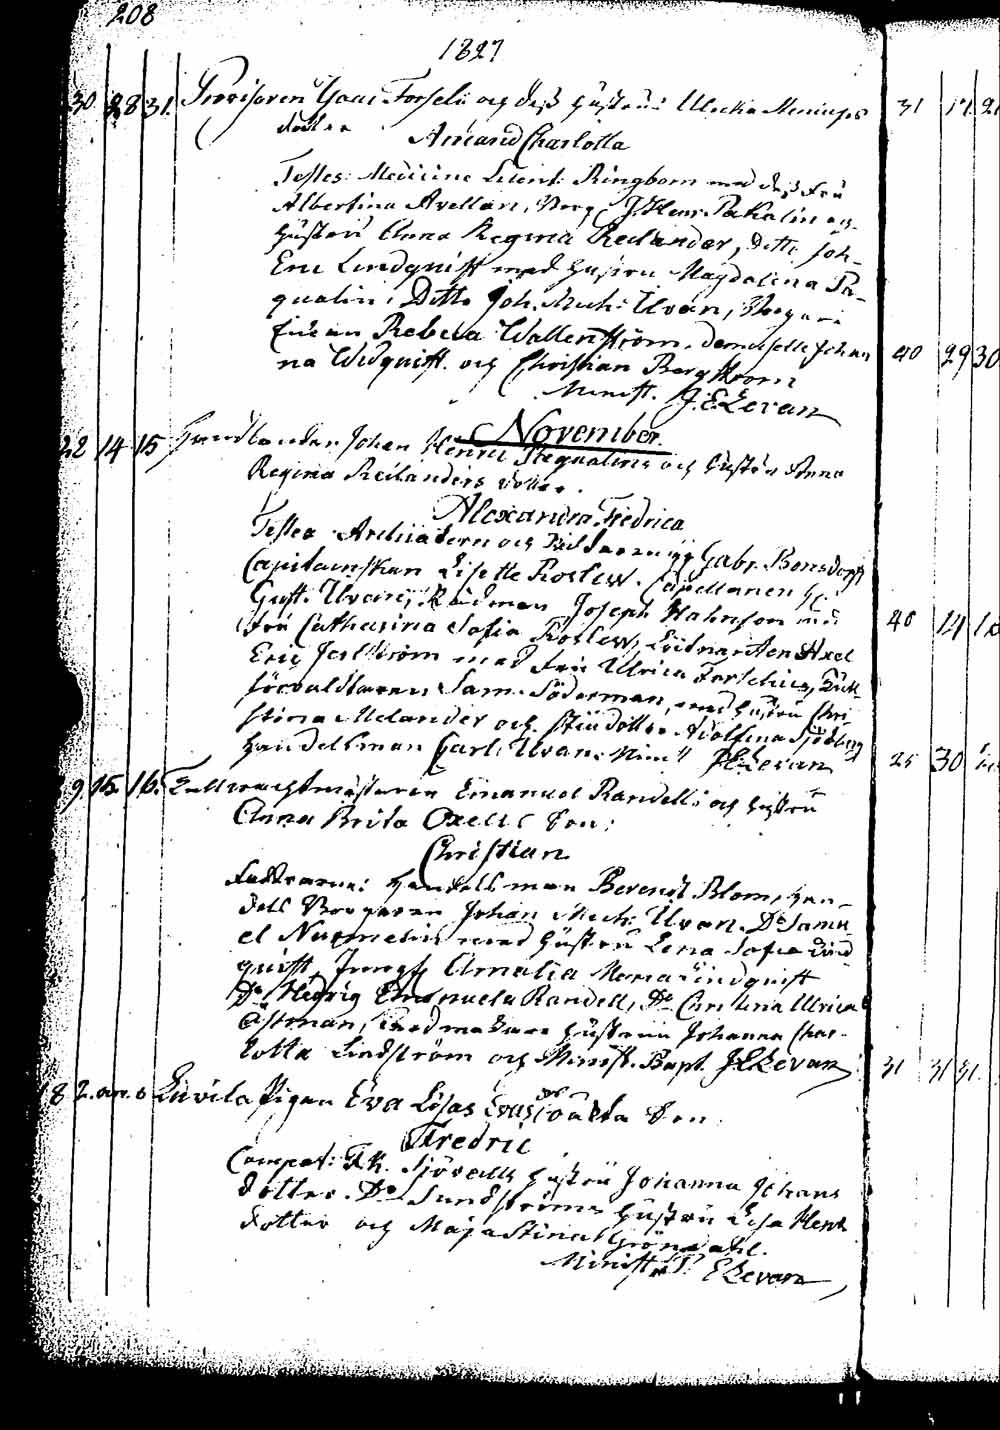 208
1827
30. 28 31. Provisoren Isaac Forselii och dess Hustrus Ulricka Menicups
dotter
Amanda Charlotta
Testes: Medicine Licent: Ringbom med dess Fru
Albertina Avellan, Borg. J. Henr. Pakalin och
Hustru Anna Regina Reilander, ditto Joh.
Eric Lindqvist med Hustru Magdalena Pa-
qualin, Ditto Joh. Mich: Uvan, Borgari
Enkan Rebeca Wallenström. Demoiselle Johan
na Widqvist. och Christian Bergstrom
Minist. J. E. Levan
November.
22 14 15 Handlanden Johan Henric Paqualins och Hustru Anna
Regina Reilanders dotter.
Alexandra Fredrica
Testes Archiatern och Riddaren Gabr. Bonsdorff
Capitainskan Lisette Roslew. Capellanen
Gust. Uvan, Rådman Joseph Hahnson med
Fru Catharina Sofia Roslew, Löitnanten Axel
Eric Jerlström med Fru Ulrica Forselius, Tull-
förvaltaren Sam. Söderman, med Hustru Chri-
stina Melander och Studotter Adolfina Sjöberg
Handelsman Carl Uvan. Min. J E Levan
9. 15. 16. Tullvachtmästaren Emanuel Randell och Hustru
Anna Brita Oxells Son:
Christian
Faddrarne: Handelsman Berendt Blom, Han-
dels Borgaren Johan Mich: Uvan. Do Samu-
el Nurmelin med Hustru Lena Sofia Lind
quist, Jungf. Amalia Maria Lindquist
Do Hedvig Emanuela Randell, Do Christina Ulrica
Åstman, Hustrun Johanna Char-
lotta Lindström och Minist. Bapt. J E Levan
8 2. Envila Pigan Eva Lisas Son.
Fredric
Compat: Hustru Johanna Johans
dotter. Do Sundströms Hustru Lisa Henr.
dotter och Maja Stina Gröndahl.
Minist. J. E Levan
31 17. 2
40 29 30
40 14 1
25 30
31 31 31.